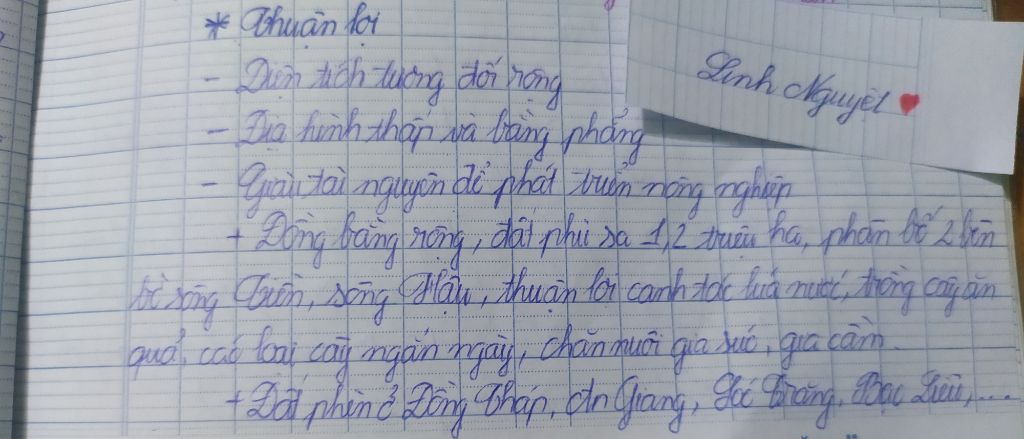 * Thuận lợi
- Diện tích tương đối rộng
Linh Nguyệt
- Địa hình thấp và bằng phẳng
- Giàu tài nguyên để phát triển nông nghiệp
+ Đồng bằng rộng, đất phù sa 1,2 triệu ha, phân bố 2 bên
bờ sông Tiền, sông Hậu, thuận lợi canh tác lúa nước, trồng cây ăn
quả, các loại cây ngắn ngày, chăn nuôi gia súc, gia cầm.
+ Đất phèn ở Đồng Tháp, An Giang, Sóc Trăng, Bạc Liêu,...